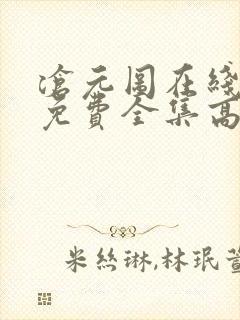 滄元圖在綫
免費全集高
米絲琳,林珉萱